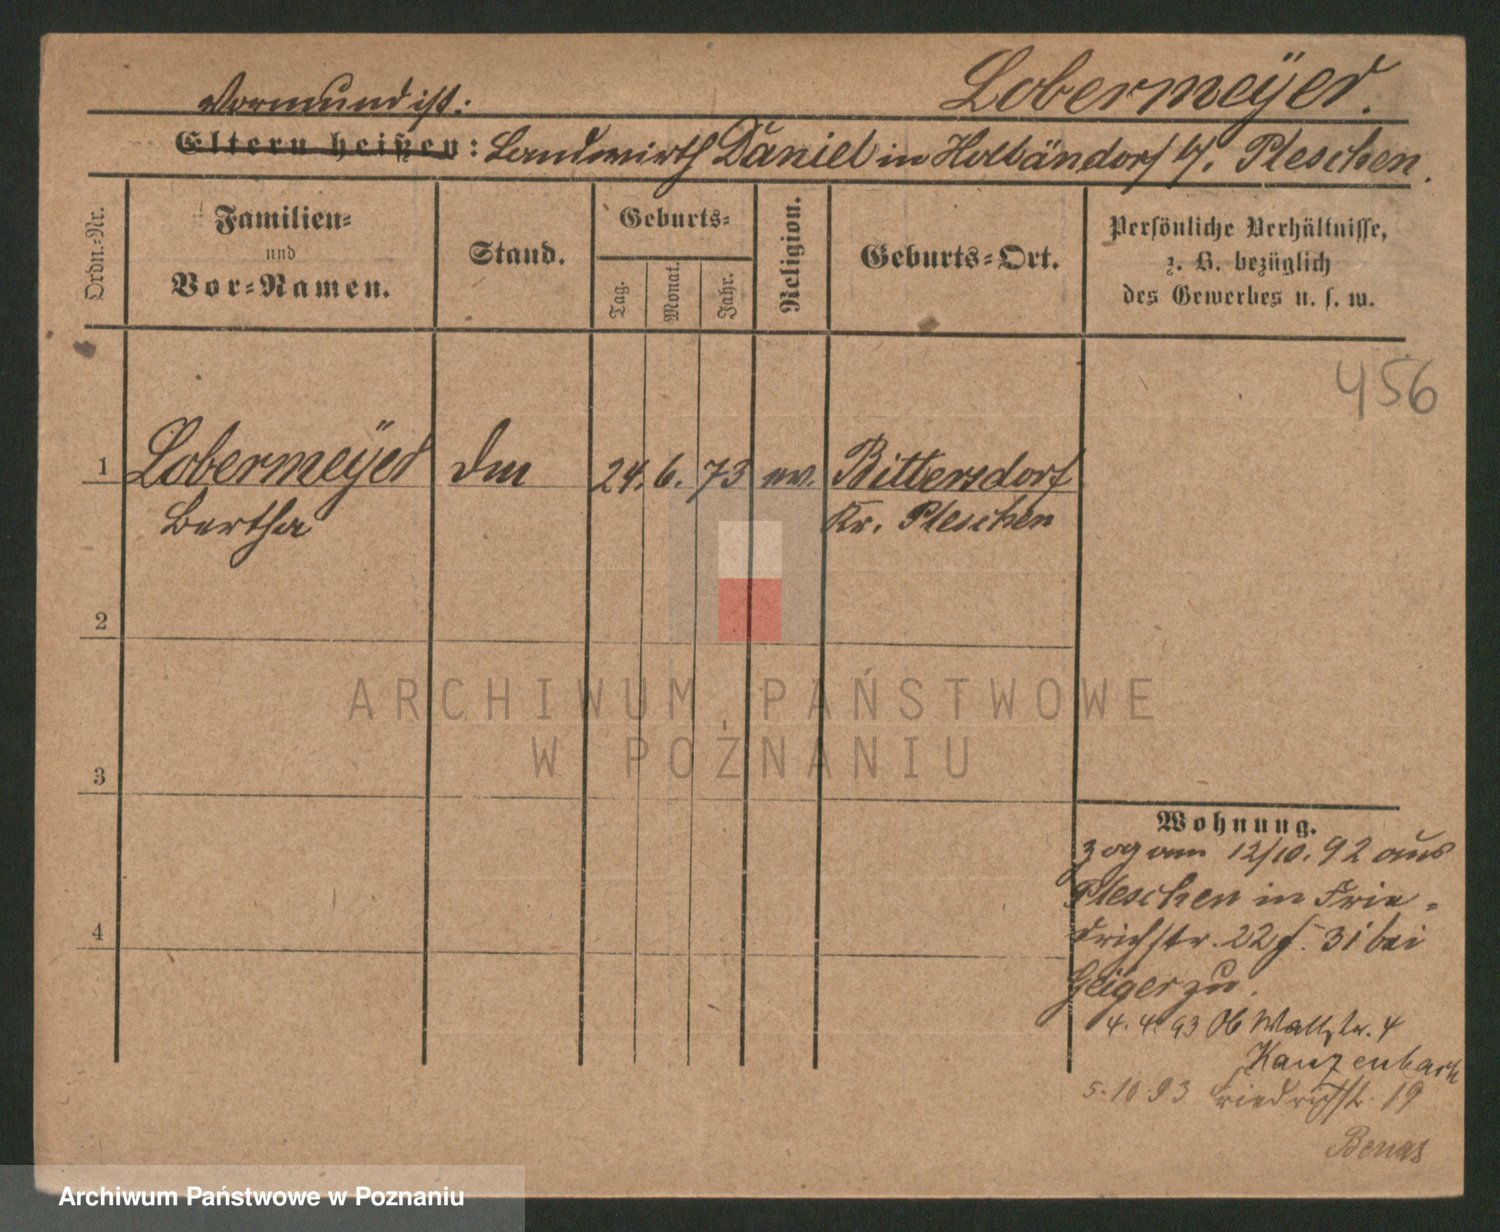 Lobermeÿer.
Vormund ist:
Eltern heißen: Landwirth Daniel in Holländorf b/. Pleschen.
Ordn.-Nr.
Familien-
und
Vor-Namen.
Stand.
Geburts-
Tag.
Monat.
Jahr.
Religion.
Geburts-Ort.
Persönliche Verhältnisse,
z. B. bezüglich
des Gewerbes u. s. w.
456
1 Lobermeÿer 24. 6. 73 ev. Bittersdorf
Bertha Kr. Pleschen
2
3
4
Wohnung.
zog am 12/10. 92 aus
Pleschen in Frie-
drichstr. 22 31 bei
Geiger zu.
4. 4. 93 Ob Wallstr. 4
Kanzenbach
5. 10. 93 Friedrichstr. 19
Benas
ARCHIWUM PAŃSTWOWE
W POZNANIU
Archiwum Państwowe w Poznaniu